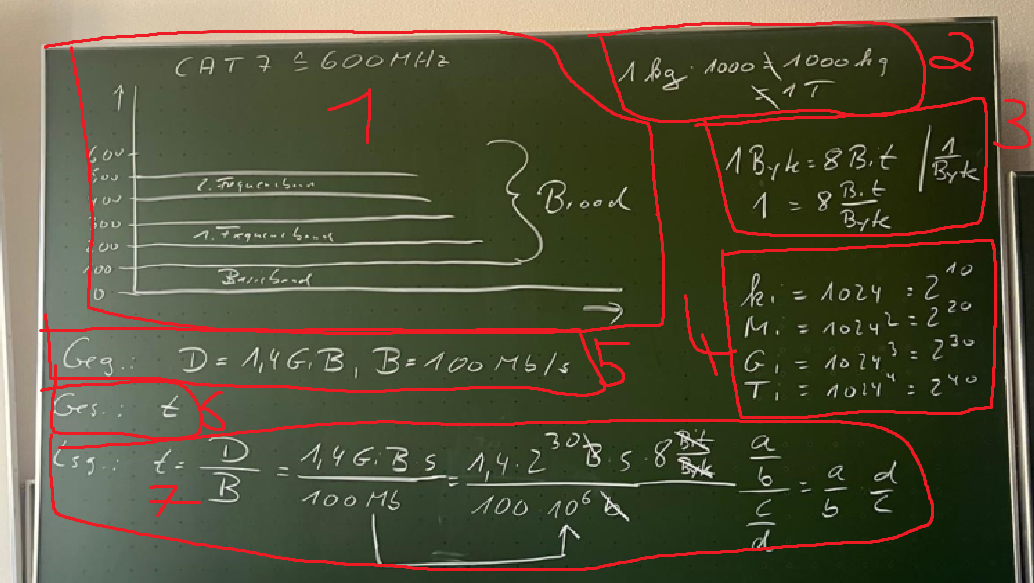 CAT 7 ≙ 600 MHz
1
600
500
400
300
200
100
0
2. Frequenzban
1. Frequenzband
Basisband
Broad
1 kg · 1000 = 1000 kg
= 1 T
2
1 Byte = 8 Bit | 1/Byte
1 = 8 Bit/Byte
3
ki = 1024 = 2^10
Mi = 1024^2 = 2^20
Gi = 1024^3 = 2^30
Ti = 1024^4 = 2^40
4
Geg.: D = 1,4 GiB, B = 100 Mb/s
5
Ges.: t
6
Lsg.: t = D/B = 1,4 GiB s / 100 Mb = 1,4 · 2^30 B · s · 8 Bit/Byte / 100 · 10^6 b
7
a/b / c/d = a/b · d/c